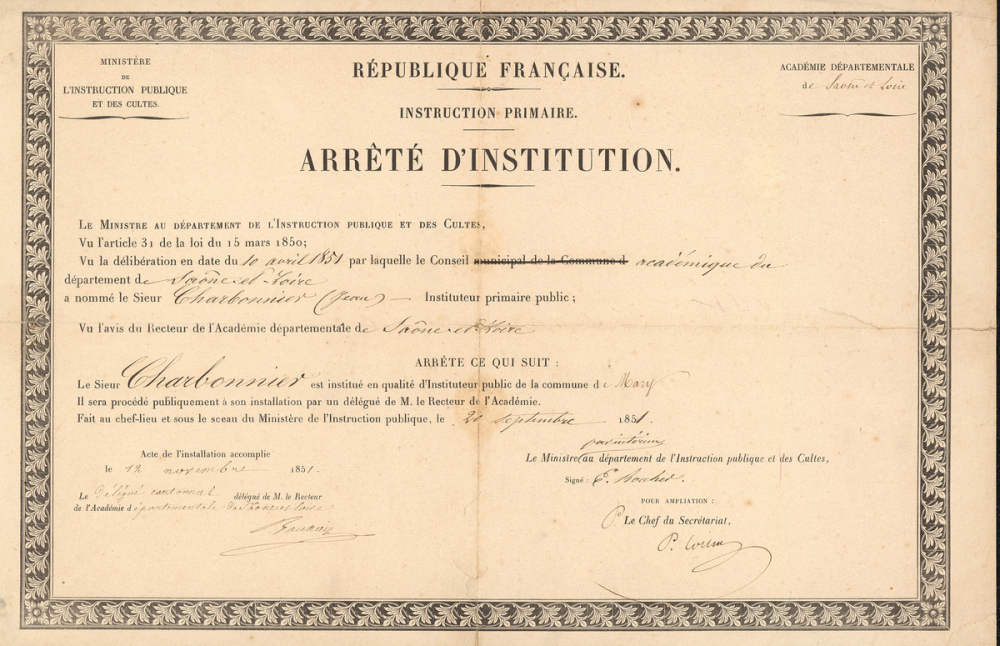 MINISTÈRE
DE
L'INSTRUCTION PUBLIQUE
ET DES CULTES.
RÉPUBLIQUE FRANÇAISE.
INSTRUCTION PRIMAIRE.
ARRÊTÉ D'INSTITUTION.
ACADÉMIE DÉPARTEMENTALE
de Saône et Loire
LE MINISTRE AU DÉPARTEMENT DE L'INSTRUCTION PUBLIQUE ET DES CULTES,
Vu l'article 31 de la loi du 15 mars 1850;
Vu la délibération en date du 10 avril 1851 par laquelle le Conseil municipal de la Commune d académique du
département de Saône-et-Loire
a nommé le Sieur Charbonnier (Jean) — Instituteur primaire public;
Vu l'avis du Recteur de l'Académie départementale de Saône-et-Loire
ARRÊTE CE QUI SUIT :
Le Sieur Charbonnier est institué en qualité d'Instituteur public de la commune de Mary
Il sera procédé publiquement à son installation par un délégué de M. le Recteur de l'Académie.
Fait au chef-lieu et sous le sceau du Ministère de l'Instruction publique, le septembre 1851.
Acte de l'installation accomplie
le 12 novembre 1851.
Le délégué cantonal délégué de M. le Recteur
de l'Académie départementale de Saône et Loire
par intérim
Le Ministre au département de l'Instruction publique et des Cultes,
Signé :
POUR AMPLIATION :
P Le Chef du Secrétariat,